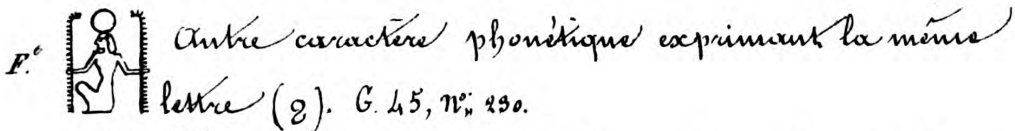 F.° Autre caractère phonétique exprimant la même
lettre (ϩ). G. 45, n°; 230.